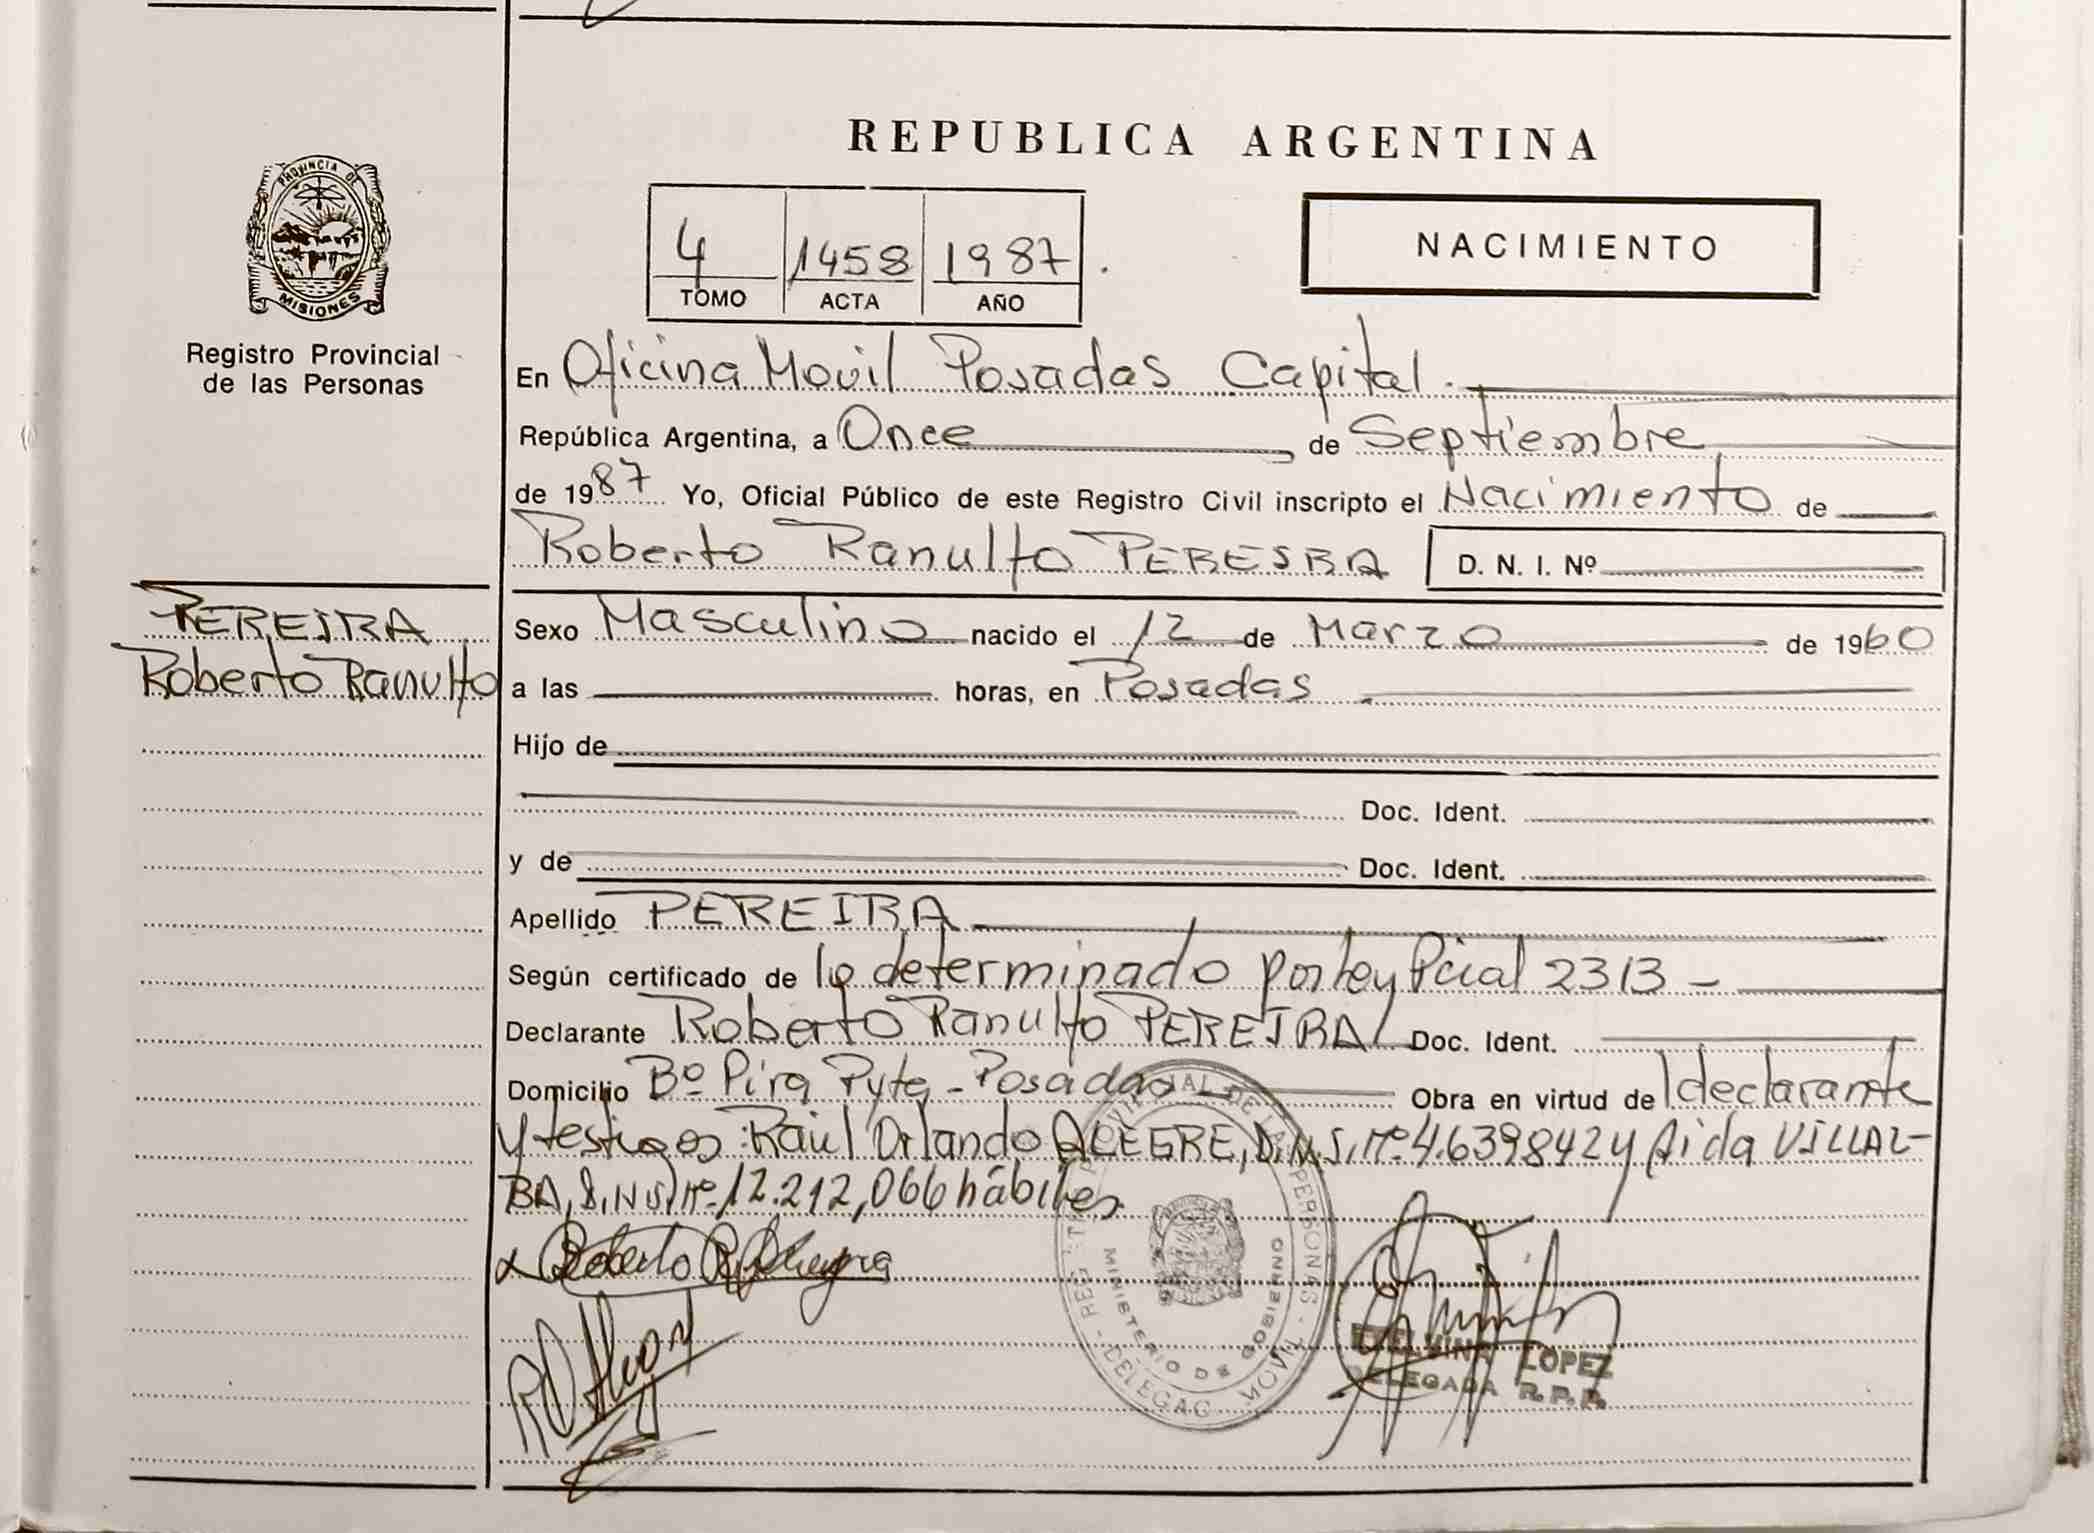 REPUBLICA ARGENTINA
PROVINCIA DE
MISIONES
Registro Provincial
de las Personas
4 1458 1987
TOMO ACTA AÑO
NACIMIENTO
En Oficina Movil Posadas Capital.
República Argentina, a Once de Septiembre
de 1987 Yo, Oficial Público de este Registro Civil inscripto el Nacimiento de
Roberto Ranulfo PEREIRA D. N. I. Nº
PEREIRA
Roberto Ranulfo
Sexo Masculino nacido el 12 de Marzo de 1960
a las horas, en Posadas
Hijo de
Doc. Ident.
y de Doc. Ident.
Apellido PEREIRA
Según certificado de lo determinado por Ley Pcial 2313 -
Declarante Roberto Ranulfo PEREIRA Doc. Ident.
Domicilio Bº Pira Pyta - Posadas Obra en virtud de declarante
y testigos: Raul Orlando ALEGRE, D.N.I. Nº 4.639842 y Aida VILLAL-
BA, D.N.I. Nº 12.212,066 hábiles.
Roberto R
MINISTERIO DE GOBIERNO
DELEGAC. MOVIL
LOPEZ
DELEGADA R.P.P.